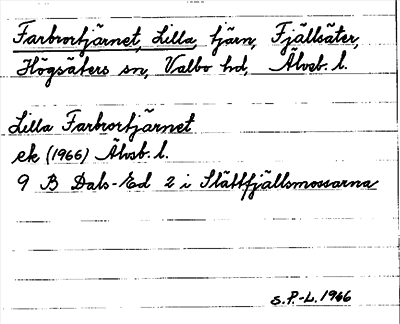 Farbrortjärnet, Lilla, tjärn, Fjällsäter,
Högsäters sn, Valbo hd, Älvsb. l.
Lilla Farbrortjärnet
ek (1966) Älvsb. l.
9 B Dals-Ed 2 i Slättfjällsmossarna
S.P-L. 1966